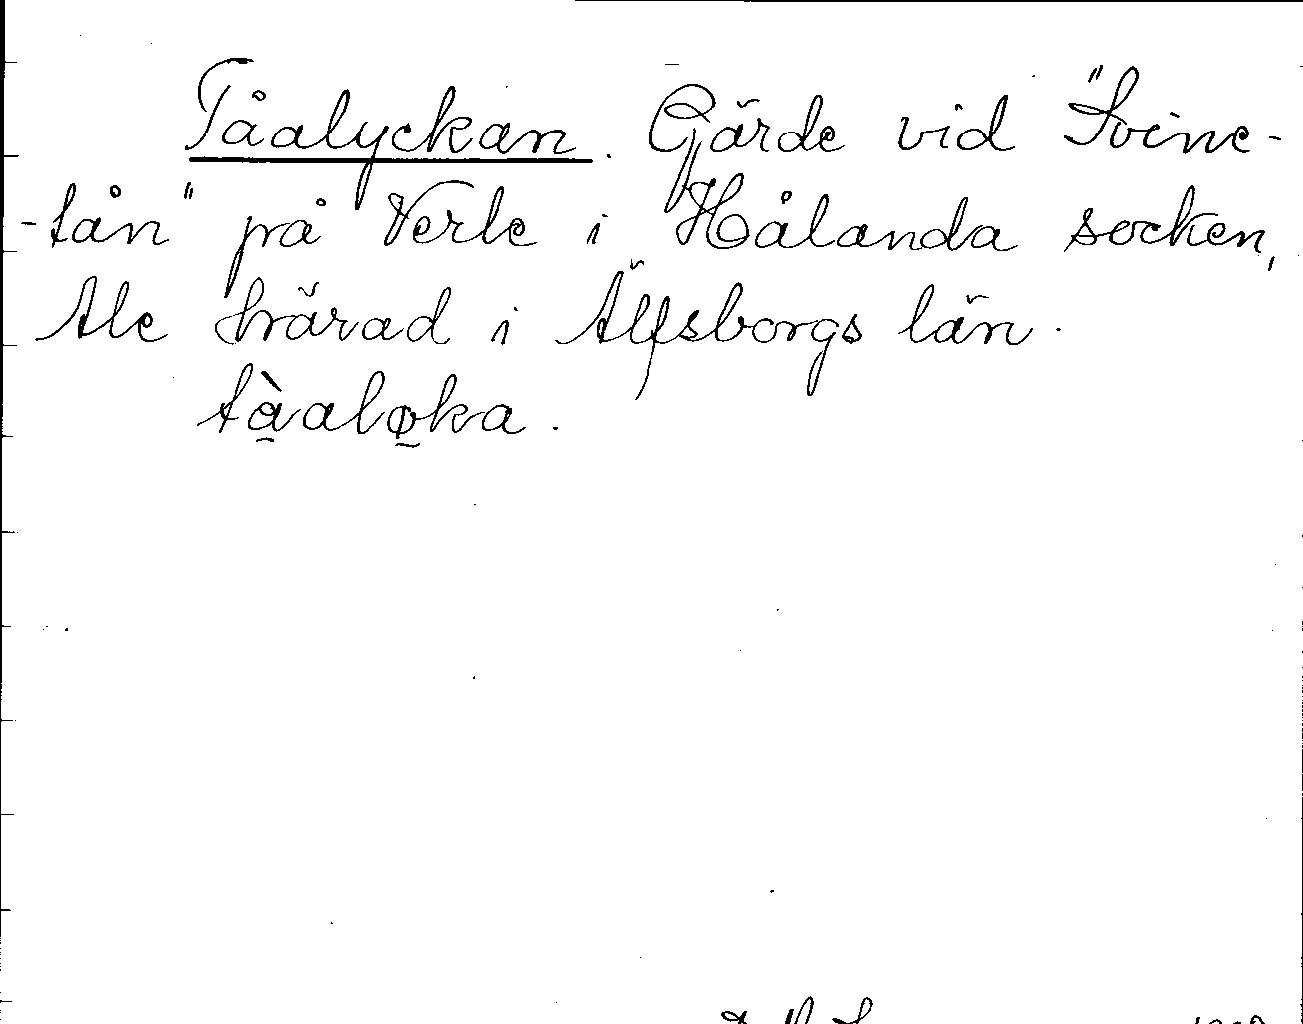 Tåalyckan. Gärde vid "Svine-
-tån" på Verle i Hålanda socken,
Ale härad i Älfsborgs län.
tà̱alo̱ka.